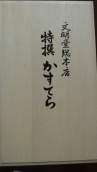 文明堂総本店
特撰 かすてら